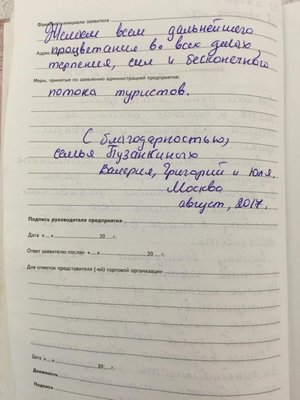 Фамилия и инициалы заявителя
Желаем всем дальнейшего
Адрес
процветания во всех делах,
терпения, сил и бесконечного
Меры, принятые по заявлению администрацией предприятия:
потока туристов.
С благодарностью,
семья Пузанкиных
Валерия, Григорий и Юля.
Москва
август, 2017.
Подпись руководителя предприятия
Дата «__» 20__г.
Ответ заявителю послан «__» 20__г.
Для отметок представителя (-ей) торговой организации
Дата «__» 20__г.
Должность
Подпись